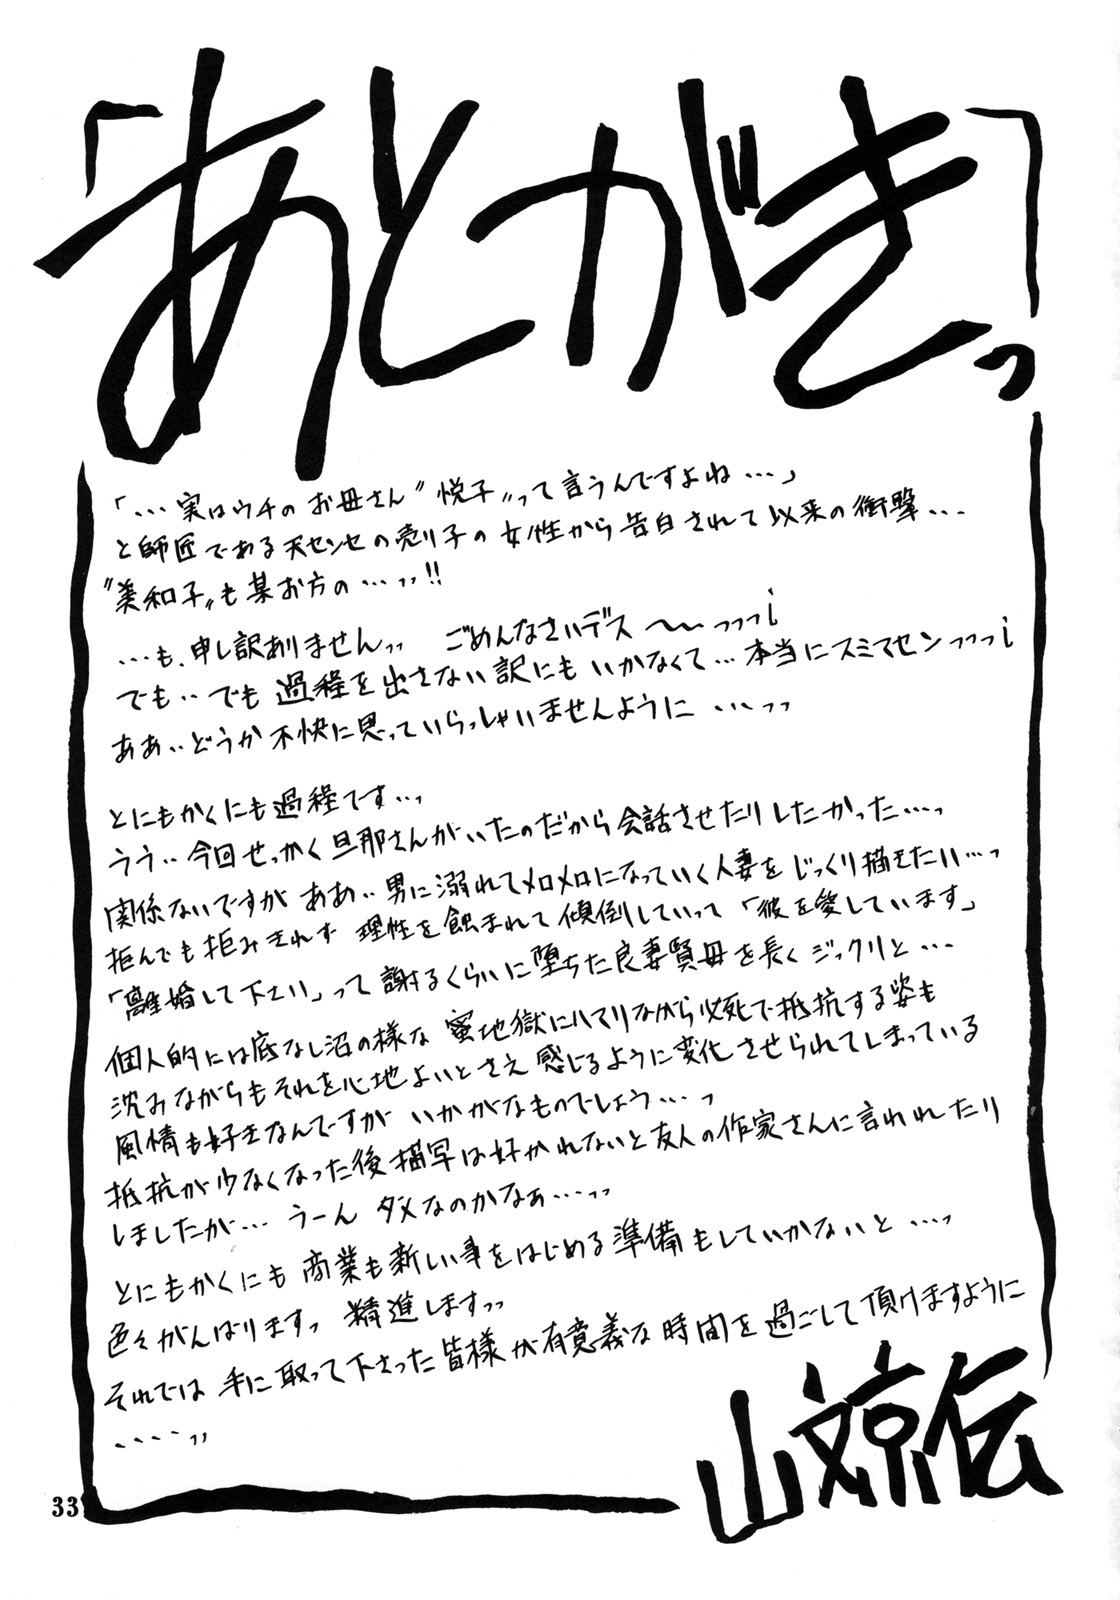 「あとがきっ」
「…実はウチのお母さん〝悦子〟って言うんですよね…」
と師匠である天センセの売り子の女性から告白されて以来の衝撃…
〝美和子〟も某お方の…ッッ!!
…も、申し訳ありませんッッ ごめんなさいデス〜〜ッッッi
でも‥でも過程を出さない訳にもいかなくて…本当にスミマセンッッッi
ああ‥どうか不快に思っていらっしゃいませんように…ッッ
とにもかくにも過程です…ッ
うう‥今回せっかく旦那さんがいたのだから会話させたりしたかった…ッ
関係ないですが ああ‥男に溺れてメロメロになっていく人妻をじっくり描きたい…っ
拒んでも拒みきれず 理性を蝕まれて傾倒していって「彼を愛しています」
「離婚して下さい」って謝るくらいに堕ちた良妻賢母を長くジックリと…
個人的には底なし沼の様な蜜地獄にハマりながら必死で抵抗する姿も
沈みながらもそれを心地よいとさえ感じるように変化させられてしまっている
風情も好きなんですが いかがなものでしょう…っ
抵抗が少なくなった後描写は好かれないと友人の作家さんに言われたり
しましたが… うーん ダメなのかなぁ…ッッ
とにもかくにも 商業も新しい事をはじめる準備もしていかないと…ッ
色々がんばりますっ 精進しますッッ
それでは 手に取って下さった皆様が有意義な時間を過ごして頂けますように
‥‥‥ッッ
山文京伝
33